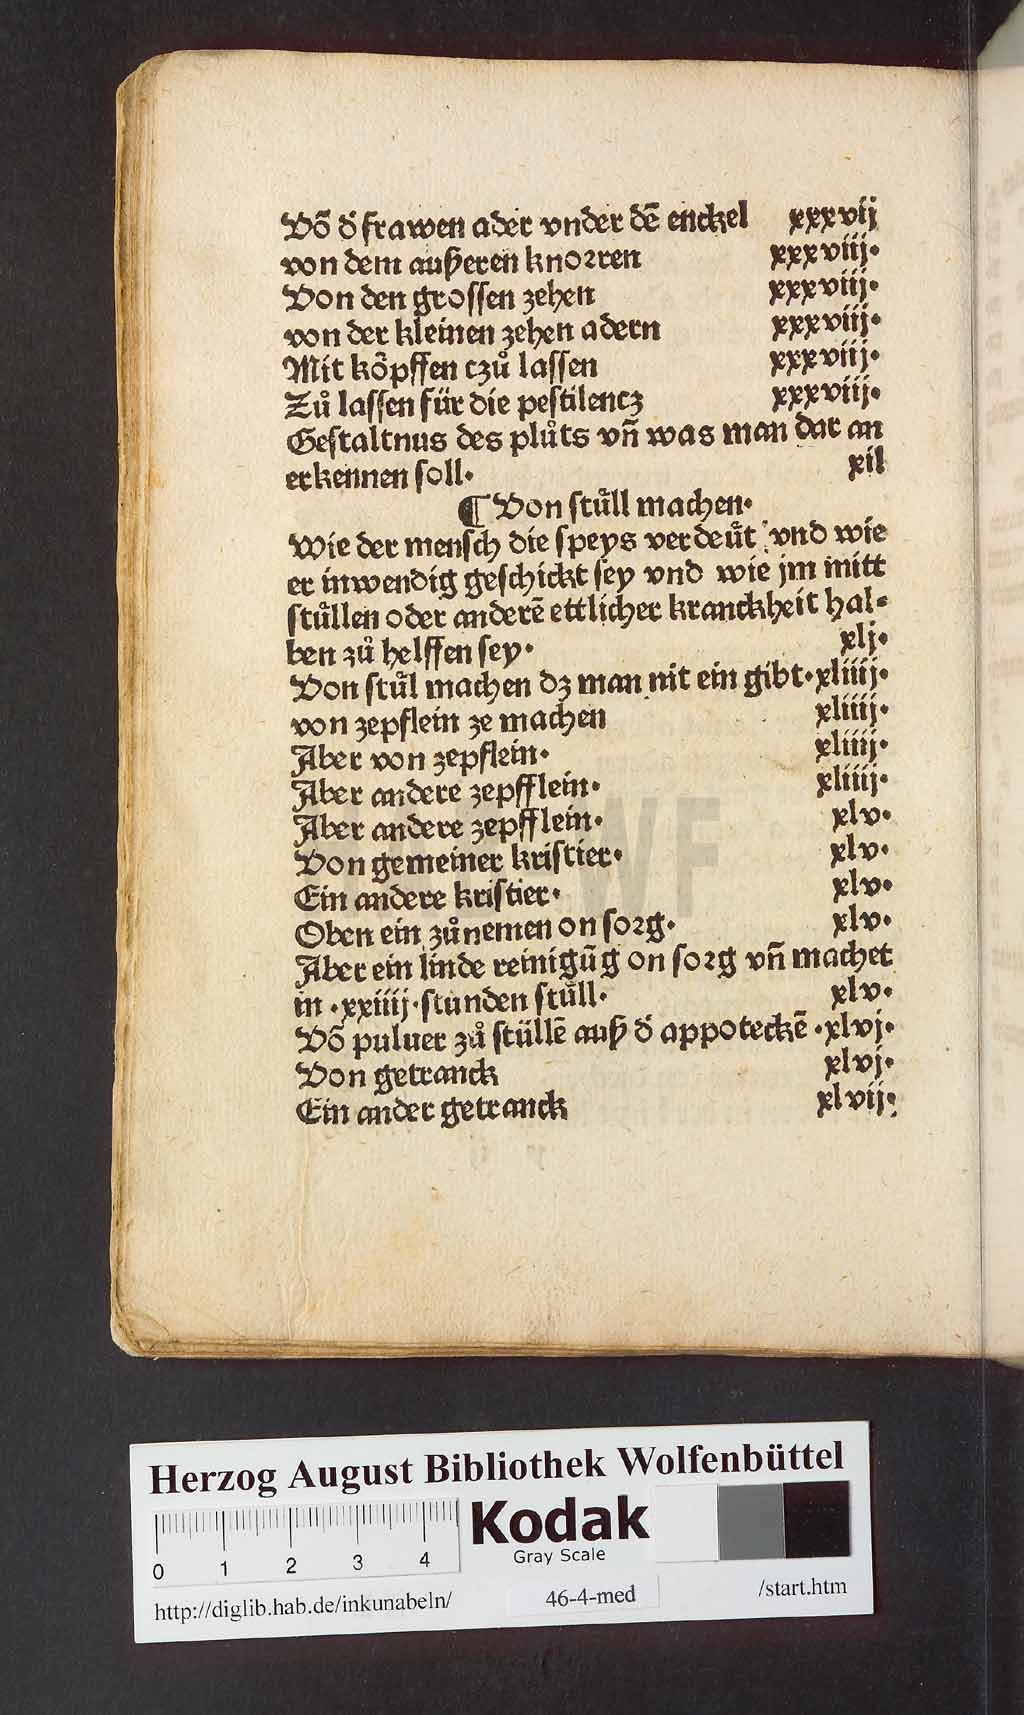 Võ d̕ frawen ader vnder dē enckel xxxvij
von dem außeren knorren xxxviij·
Von den grossen zehen xxxviij·
von der kleinen zehen adern xxxviij·
Mit köpffen czů lassen xxxviij·
Zů lassen für die pestilencz xxxviij·
Gestaltnus des plůts vñ was man dar an
erkennen soll· xil
¶ Von stůll machen·
Wie der mensch die speys verdeüt vnd wie
er inwendig geschickt sey vnd wie jm mitt
stůllen oder anderē ettlicher kranckheit hal-
ben zů helffen sey· xlj·
Von stůl machen dz man nit ein gibt· xliiij·
von zepflein ze machen xliiij·
Aber von zepflein· xliiij·
Aber andere zepfflein· xliiij·
Aber andere zepfflein· xlv·
Von gemeiner kristier· xlv·
Ein andere kristier· xlv·
Oben ein zůnemen on sorg· xlv·
Aber ein linde reinigūg on sorg vñ machet
in ·xxiiij· stunden stůll· xlv·
Võ puluer zů stüllē auß d̕ appoteckē ·xlvj·
Von getranck xlvj·
Ein ander getranck xlvij·
WF
Herzog August Bibliothek Wolfenbüttel
0 1 2 3 4
Kodak
Gray Scale
http://diglib.hab.de/inkunabeln/ 46-4-med /start.htm